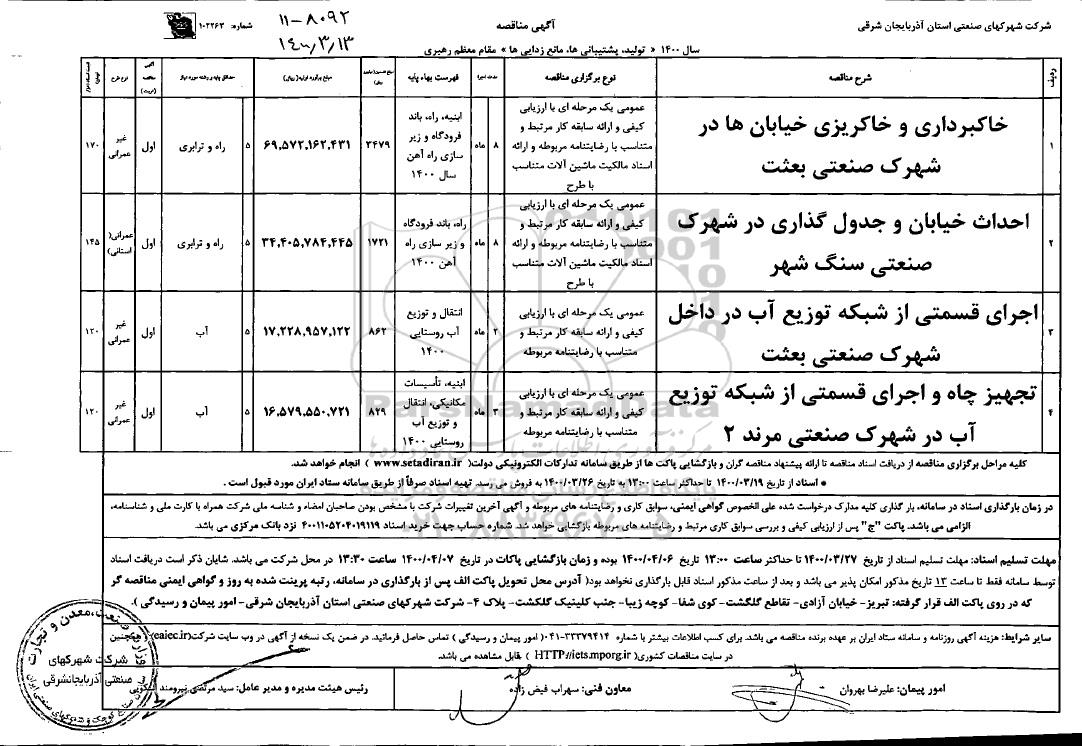 شرکت شهرکهای صنعتی استان آذربایجان شرقی
آگهی مناقصه
شماره: ۱۰۲۲۶۳
۱۱-۸۰۹۲
۱۴۰۰/۳/۱۳
سال ۱۴۰۰ « تولید، پشتیبانی ها، مانع زدایی ها» مقام معظم رهبری
ردیف
شرح مناقصه
نوع برگزاری مناقصه
مدت اجرا
فهرست بهاء پایه
مبلغ برآورد اولیه( ریال)
حداقل پایه و رشته مورد نیاز
نوع طرح
۱
خاکبرداری و خاکریزی خیابان ها در
شهرک صنعتی بعثت
عمومی یک مرحله ای با ارزیابی
کیفی و ارائه سابقه کار مرتبط و
متناسب با رضایتنامه مربوطه و ارائه
اسناد مالکیت ماشین آلات متناسب
با طرح
۸ ماه
ابنیه، راه، باند
فرودگاه و زیر
سازی راه آهن
سال ۱۴۰۰
۳۴۷۹
۶۹,۵۷۲,۱۶۲,۴۳۱
۵
راه و ترابری
اول
غیر
عمرانی
۱۷۰
۲
احداث خیابان و جدول گذاری در شهرک
صنعتی سنگ شهر
عمومی یک مرحله ای با ارزیابی
کیفی و ارائه سابقه کار مرتبط و
متناسب با رضایتنامه مربوطه و ارائه
اسناد مالکیت ماشین آلات متناسب
با طرح
۸ ماه
راه، باند فرودگاه
و زیر سازی راه
آهن ۱۴۰۰
۱۷۲۱
۳۴,۴۰۵,۷۸۴,۴۴۵
۵
راه و ترابری
اول
عمرانی(
استانی)
۱۴۵
۳
اجرای قسمتی از شبکه توزیع آب در داخل
شهرک صنعتی بعثت
عمومی یک مرحله ای با ارزیابی
کیفی و ارائه سابقه کار مرتبط و
متناسب با رضایتنامه مربوطه
۲ ماه
انتقال و توزیع
آب روستایی
۱۴۰۰
۸۶۲
۱۷,۲۲۸,۹۵۷,۱۲۲
۵
آب
اول
غیر
عمرانی
۱۲۰
۴
تجهیز چاه و اجرای قسمتی از شبکه توزیع
آب در شهرک صنعتی مرند ۲
عمومی یک مرحله ای با ارزیابی
کیفی و ارائه سابقه کار مرتبط و
متناسب با رضایتنامه مربوطه
۳ ماه
ابنیه، تأسیسات
مکانیکی، انتقال
و توزیع آب
روستایی ۱۴۰۰
۸۲۹
۱۶,۵۷۹,۵۵۰,۷۲۱
۵
آب
اول
غیر
عمرانی
۱۲۰
کلیه مراحل برگزاری مناقصه از دریافت اسناد مناقصه تا ارائه پیشنهاد مناقصه گران و بازگشایی پاکت ها از طریق سامانه تدارکات الکترونیکی دولت( www.setadiran.ir ) انجام خواهد شد.
• اسناد از تاریخ ۱۴۰۰/۰۳/۱۹ تا حداکثر ساعت ۱۳:۰۰ به تاریخ ۱۴۰۰/۰۳/۲۶ به فروش می رسد. تهیه اسناد صرفاً از طریق سامانه ستاد ایران مورد قبول است .
در زمان بارگذاری اسناد در سامانه، بار گذاری کلیه مدارک درخواست شده علی الخصوص گواهی ایمنی، سوابق کاری و رضایتنامه های مربوطه و آگهی آخرین تغییرات شرکت با مشخص بودن صاحبان امضاء و شناسه ملی شرکت همراه با کارت ملی و شناسنامه،
الزامی می باشد. پاکت "ج" پس از ارزیابی کیفی و بررسی سوابق کاری مرتبط و رضایتنامه های مربوطه بازگشایی خواهد شد. شماره حساب جهت خرید اسناد ۴۰۰۱۱۰۵۲۰۴۰۱۹۱۱۹ نزد بانک مرکزی می باشد.
مهلت تسلیم اسناد: مهلت تسلیم اسناد از تاریخ ۱۴۰۰/۰۳/۲۷ تا حداکثر ساعت ۱۳:۰۰ تاریخ ۱۴۰۰/۰۴/۰۶ بوده و زمان بازگشایی پاکات در تاریخ ۱۴۰۰/۰۴/۰۷ ساعت ۱۳:۳۰ در محل شرکت می باشد. شایان ذکر است دریافت اسناد
توسط سامانه فقط تا ساعت ۱۳ تاریخ مذکور امکان پذیر می باشد و بعد از ساعت مذکور اسناد قابل بارگذاری نخواهد بود( آدرس محل تحویل پاکت الف پس از بارگذاری در سامانه، رتبه پرینت شده به روز و گواهی ایمنی مناقصه گر
که در روی پاکت الف قرار گرفته: تبریز- خیابان آزادی- تقاطع گلگشت- کوی شفا- کوچه زیبا- جنب کلینیک گلگشت- پلاک ۴- شرکت شهرکهای صنعتی استان آذربایجان شرقی- امور پیمان و رسیدگی ).
سایر شرایط: هزینه آگهی روزنامه و سامانه ستاد ایران بر عهده برنده مناقصه می باشد. برای کسب اطلاعات بیشتر با شماره ۳۳۳۷۹۴۱۴-۰۴۱( امور پیمان و رسیدگی ) تماس حاصل فرمائید. در ضمن یک نسخه از آگهی در وب سایت شرکت(eaiec.ir) و همچنین
در سایت مناقصات کشوری( HTTP://iets.mporg.ir ) قابل مشاهده می باشد.
امور پیمان: علیرضا بهروان
معاون فنی: سهراب فیض زاده
رئیس هیئت مدیره و مدیر عامل: سید مرتضی نیرومند
وزارت صنعت، معدن و تجارت
شرکت شهرکهای
صنعتی آذربایجانشرقی
سازمان صنایع کوچک و شهرکهای صنعتی ایران
ParsNamadData